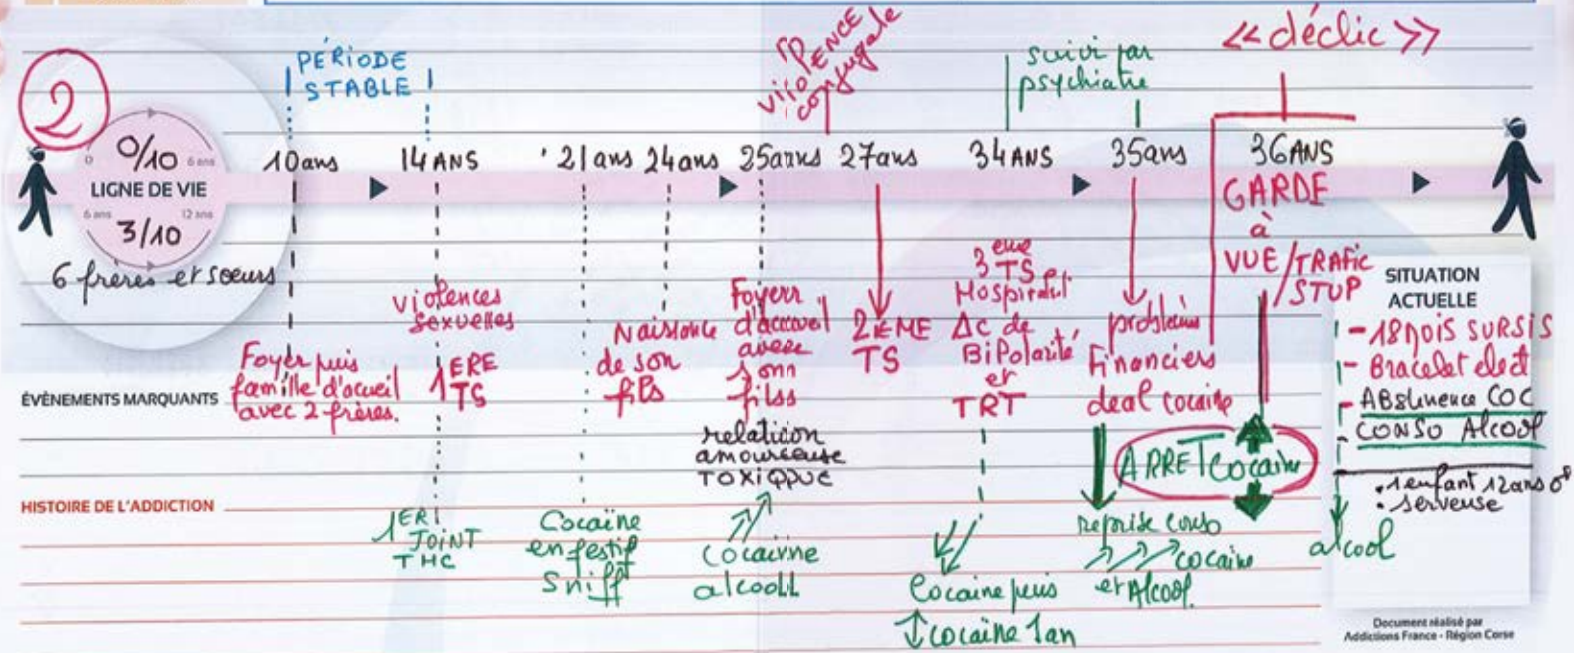 2
PÉRIODE
STABLE
VIOLENCE
conjugale
suivi par
psychiatre
<< déclic >>
0/10
0
6 ans
LIGNE DE VIE
6 ans
12 ans
3/10
6 frères et soeurs
10 ans
14 ANS
21 ans
24 ans
25 ans
27 ans
34 ANS
35 ans
36 ANS
GARDE
à
VUE / TRAFIC
STUP
ÉVÈNEMENTS MARQUANTS
Foyer puis
famille d'accueil
avec 2 frères.
violences
sexuelles
1ERE
TS
Naissance
de son
fils
Foyer
d'accueil
avec
son
fils
relation
amoureuse
TOXIQUE
2IÈME
TS
3ème
TS
Hospital
Δc de
BiPolarité
et
TRT
problèmes
Financiers
deal cocaine
ARRET cocaine
SITUATION
ACTUELLE
- 18 MOIS SURSIS
- Bracelet elect
- ABstinence COC
- CONSO Alcool
. 1 enfant 12 ans
. serveuse
alcool
HISTOIRE DE L'ADDICTION
1ER
JOINT
THC
Cocaïne
en festif
Sniff
cocaine
alcool
Cocaine puis
↕ cocaïne 1 an
reprise conso
cocaine
et Alcool.
Document réalisé par
Addictions France - Région Corse